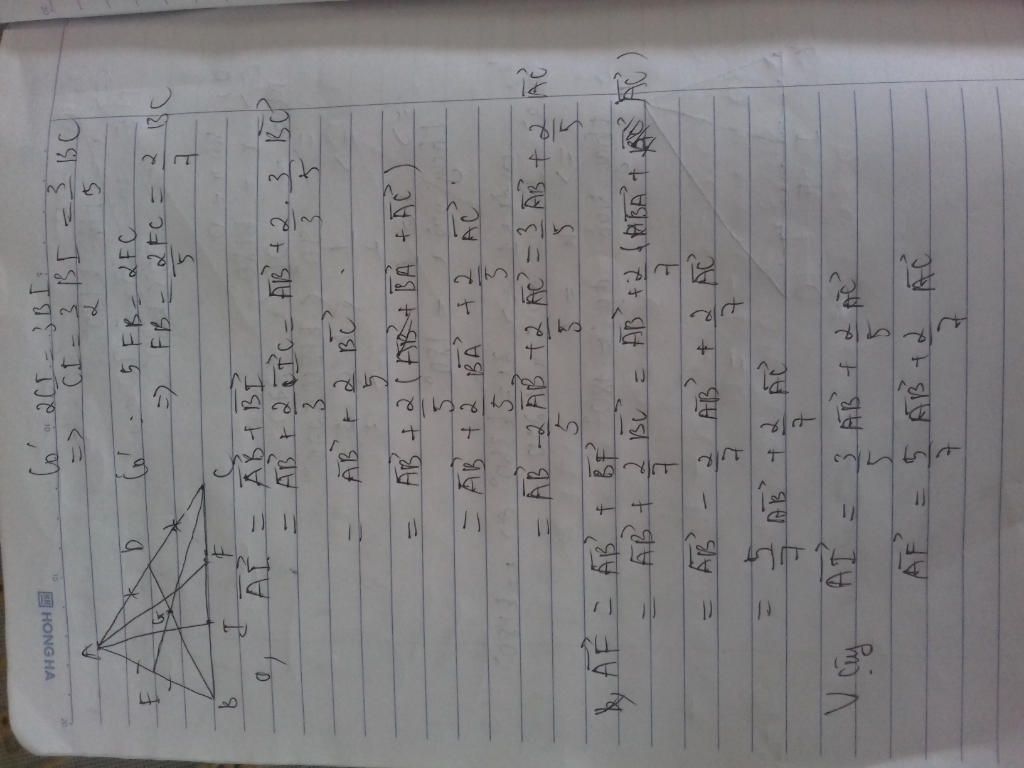 HONG HA
Có 2CI = 3BI
=> CI = 3/2 BI = 3/5 BC
Có : 5FB = 2FC
=> FB = 2FC/5 = 2/7 BC
A
E
D
G
B
I
F
C
a, AI⃗ = AB⃗ + BI⃗
= AB⃗ + 2/3 IC⃗ = AB⃗ + 2/3 . 3/5 BC⃗
= AB⃗ + 2/5 BC⃗ .
= AB⃗ + 2/5 ( BA⃗ + AC⃗ )
= AB⃗ + 2/5 BA⃗ + 2/5 AC⃗ .
= AB⃗ - 2/5 AB⃗ + 2/5 AC⃗ = 3/5 AB⃗ + 2/5 AC⃗
b, AF⃗ = AB⃗ + BF⃗
= AB⃗ + 2/7 BC⃗ = AB⃗ + 2/7 ( BA⃗ + AC⃗ )
= AB⃗ - 2/7 AB⃗ + 2/7 AC⃗
= 5/7 AB⃗ + 2/7 AC⃗
Vậy AI⃗ = 3/5 AB⃗ + 2/5 AC⃗
AF⃗ = 5/7 AB⃗ + 2/7 AC⃗